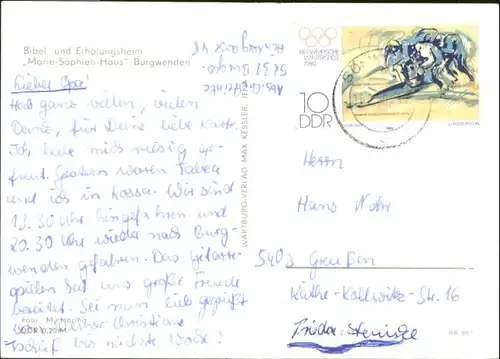 Bibel und Erholungsheim
"Marie-Sophien-Haus" Burgwenden
Lieber Opa!
Hab ganz vielen, vielen
Dank, für Deine liebe Karte.
Ich habe mich riesig ge-
freut. Gestern waren Tabea
und ich in Rossa. Wir sind
13.30 Uhr hingefahren und
20.30 Uhr wieder nach Burg-
wenden gefahren. Das Gitarre-
spielen hat uns große Freude
bereitet. Sei nun lieb gegrüßt
Christiane
Tschüß bis nächste Woche!
Foto
WARTBURG-VERLAG MAX KESSLER, JENA
XIII. OLYMPISCHE
WINTERSPIELE
1980
10
DDR
Herrn
Hans Nohr
5403 Greußen
Käthe-Kollwitz-Str. 16